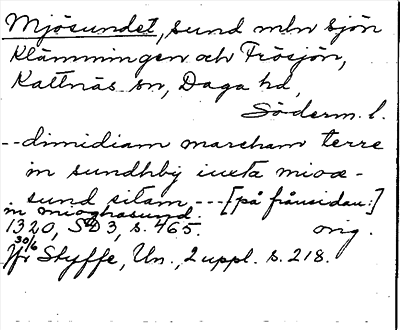 Mjösundet, sund mln sjön
Klämmingen och Frösjön,
Kattnäs sn, Daga hd,
Söderm. l.
--dimidiam marcham terre
in sundhby iuxta mioœ-
sund sitam --- [på frånsidan:]
in mioghasund.
1320, SD 3, s. 465. orig.
30/6
Jfr Styffe, Un., 2 uppl. s. 218.